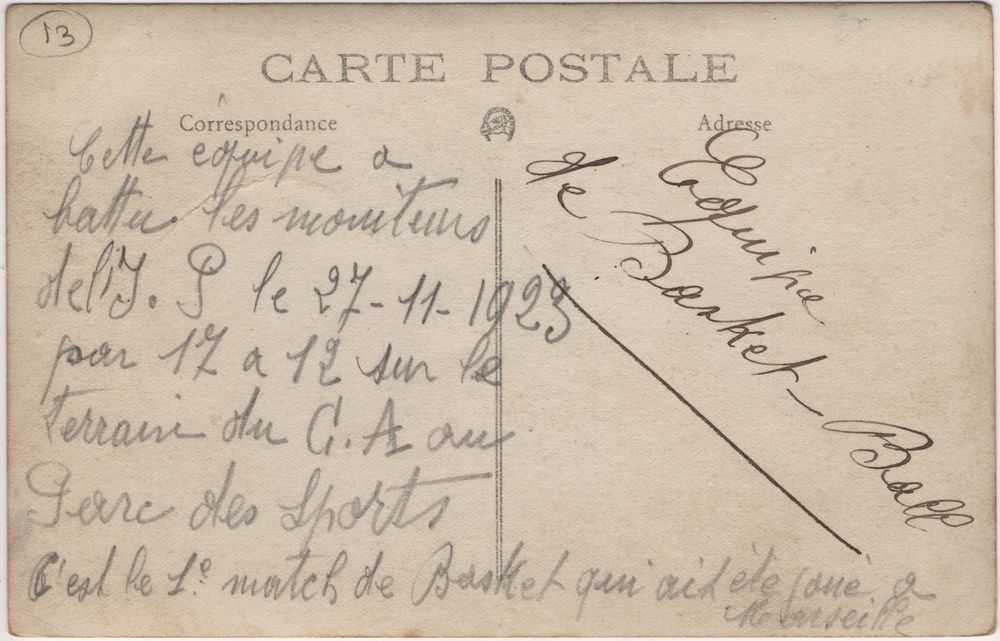 13
CARTE POSTALE
Correspondance
Adresse
Cette équipe a
battu les moniteurs
de l'I. P le 27-11-1923
par 17 a 12 sur le
terrain du C. A au
Parc des Sports
C'est le 1e match de Basket qui ait été joué a
Marseille
Equipe
de Basket-Ball